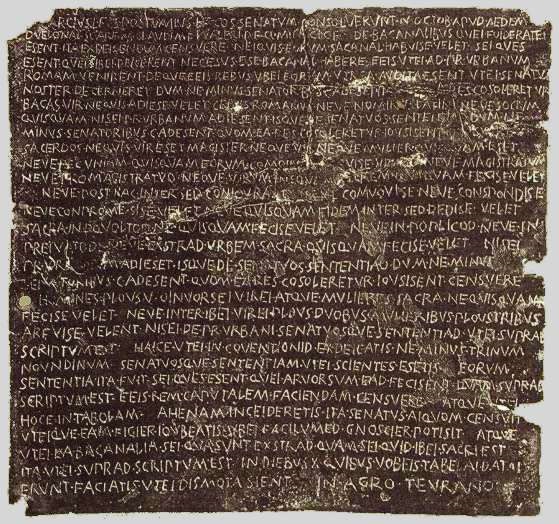 MARCIVS L F S POSTVMIVS L F COS SENATVM CONSOLVERVNT N OCTOB APVD AEDEM
DVELONAI SC ARF M CLAVDI M F L VALERI P F Q MINVCI C F DE BACANALIBVS QVEI FOIDERATEI
ESENT ITA EXDEICENDVM CENSVERE NEIQVIS EORVM SACANAL HABVISE VELET SEI QVES
ESENT QVEI SIBEI DEICERENT NECESVS ESE BACANAL HABERE EEIS VTEI AD PR VRBANVM
ROMAM VENIRENT DEQVE EEIS REBVS VBEI EORVM VTR A ESENT VTEI SENATVS
NOSTER DECERNERET DVM NE MINVS SENATORBVS RES COSOLERETVR
BACAS VIR NEQVIS ADIESE VELET CEIVIS ROMANVS NEVE NOMINVS LATINI NEVE SOCIVM
QVISQVAM NISEI PR VRBANVM ADIESENT ISQVE DE SENATVOS SENTENTIAD DVM NE
MINVS SENATORIBVS C ADESENT QVOM EA RES COSOLERETVR IOVSISENT
SACERDOS NEQVIS VIR ESET MAGISTER NEQVE VIR NEQVE MVLIER QVISQVAM ESET
NEVE PECVNIAM QVISQVAM EORVM COMOINEM VELET NEVE MAGISTRATVM
NEVE PRO MAGISTRATVO NEQVE VIRVM NEQVE MVLIEREM QVIQVAM FECISE VELET
NEVE POST HAC INTER SED CONIOVRASE COMVOVISE NEVE CONSPONDISE
NEVE CONPROMESISE VELET NEVE QVISQVAM FIDEM INTER SED DEDISE VELET
SACRA IN DQVOLTOD NE QVISQVAM FECISE VELET NEVE IN POPLICOD NEVE IN
PREIVATOD NEVE EXSTRAD VRBEM SACRA QVISQVAM FECISE VELET NISEI
PR ADIESET ISQVE DE SENATVOS SENTENTIAD DVM NE MINVS
SENATORIBVS C ADESENT QVOM EA RES COSOLERETVR IOVSISENT CENSVERE
HOMINES PLOVS V OINVORSEI VIREI ATQVE MVLIERES SACRA NE QVISQVAM
FECISE VELET NEVE INTER IBEI VIREI PLOVS DVOBVS MVLIERIBVS PLOVS TRIBVS
ARFVISE VELENT NISEI DE PR VRBANI SENATVOSQVE SENTENTIAD VTEI SVPRAD
SCRIPTVM EST HAICE VTEI IN COVENTIONID EXDEICATIS NE MINVS TRINVM
NOVNDINVM SENATVOSQVE SENTENTIAM VTEI SCIENTES ESETIS EORVM
SENTENTIA ITA FVIT SEI QVES ESENT QVEI ARVORSVM EAD FECISENT QVAM SVPRAD
SCRIPTVM EST EEIS REM CAPVTALEM FACIENDAM CENSVERE ATQVE VTEI
HOCE IN TABOLAM AHENAM INCEIDERETIS ITA SENATVS AIQVOM CENSVIT
VTEIQVE EAM FIGIER IOVBEATIS VBEI FACILVMED GNOSCIER POTISIT ATQVE
VTEI EA BACANALIA SEI QVA SVNT EXSTRAD QVAM SEI QVID IBEI SACRI EST
ITA VTEI SVPRAD SCRIPTVM EST IN DIEBVS X QVIBVS VOBEIS TABELAI DATAI
ERVNT FACIATIS VTEI DISMOTA SIENT IN AGRO TEVRANO